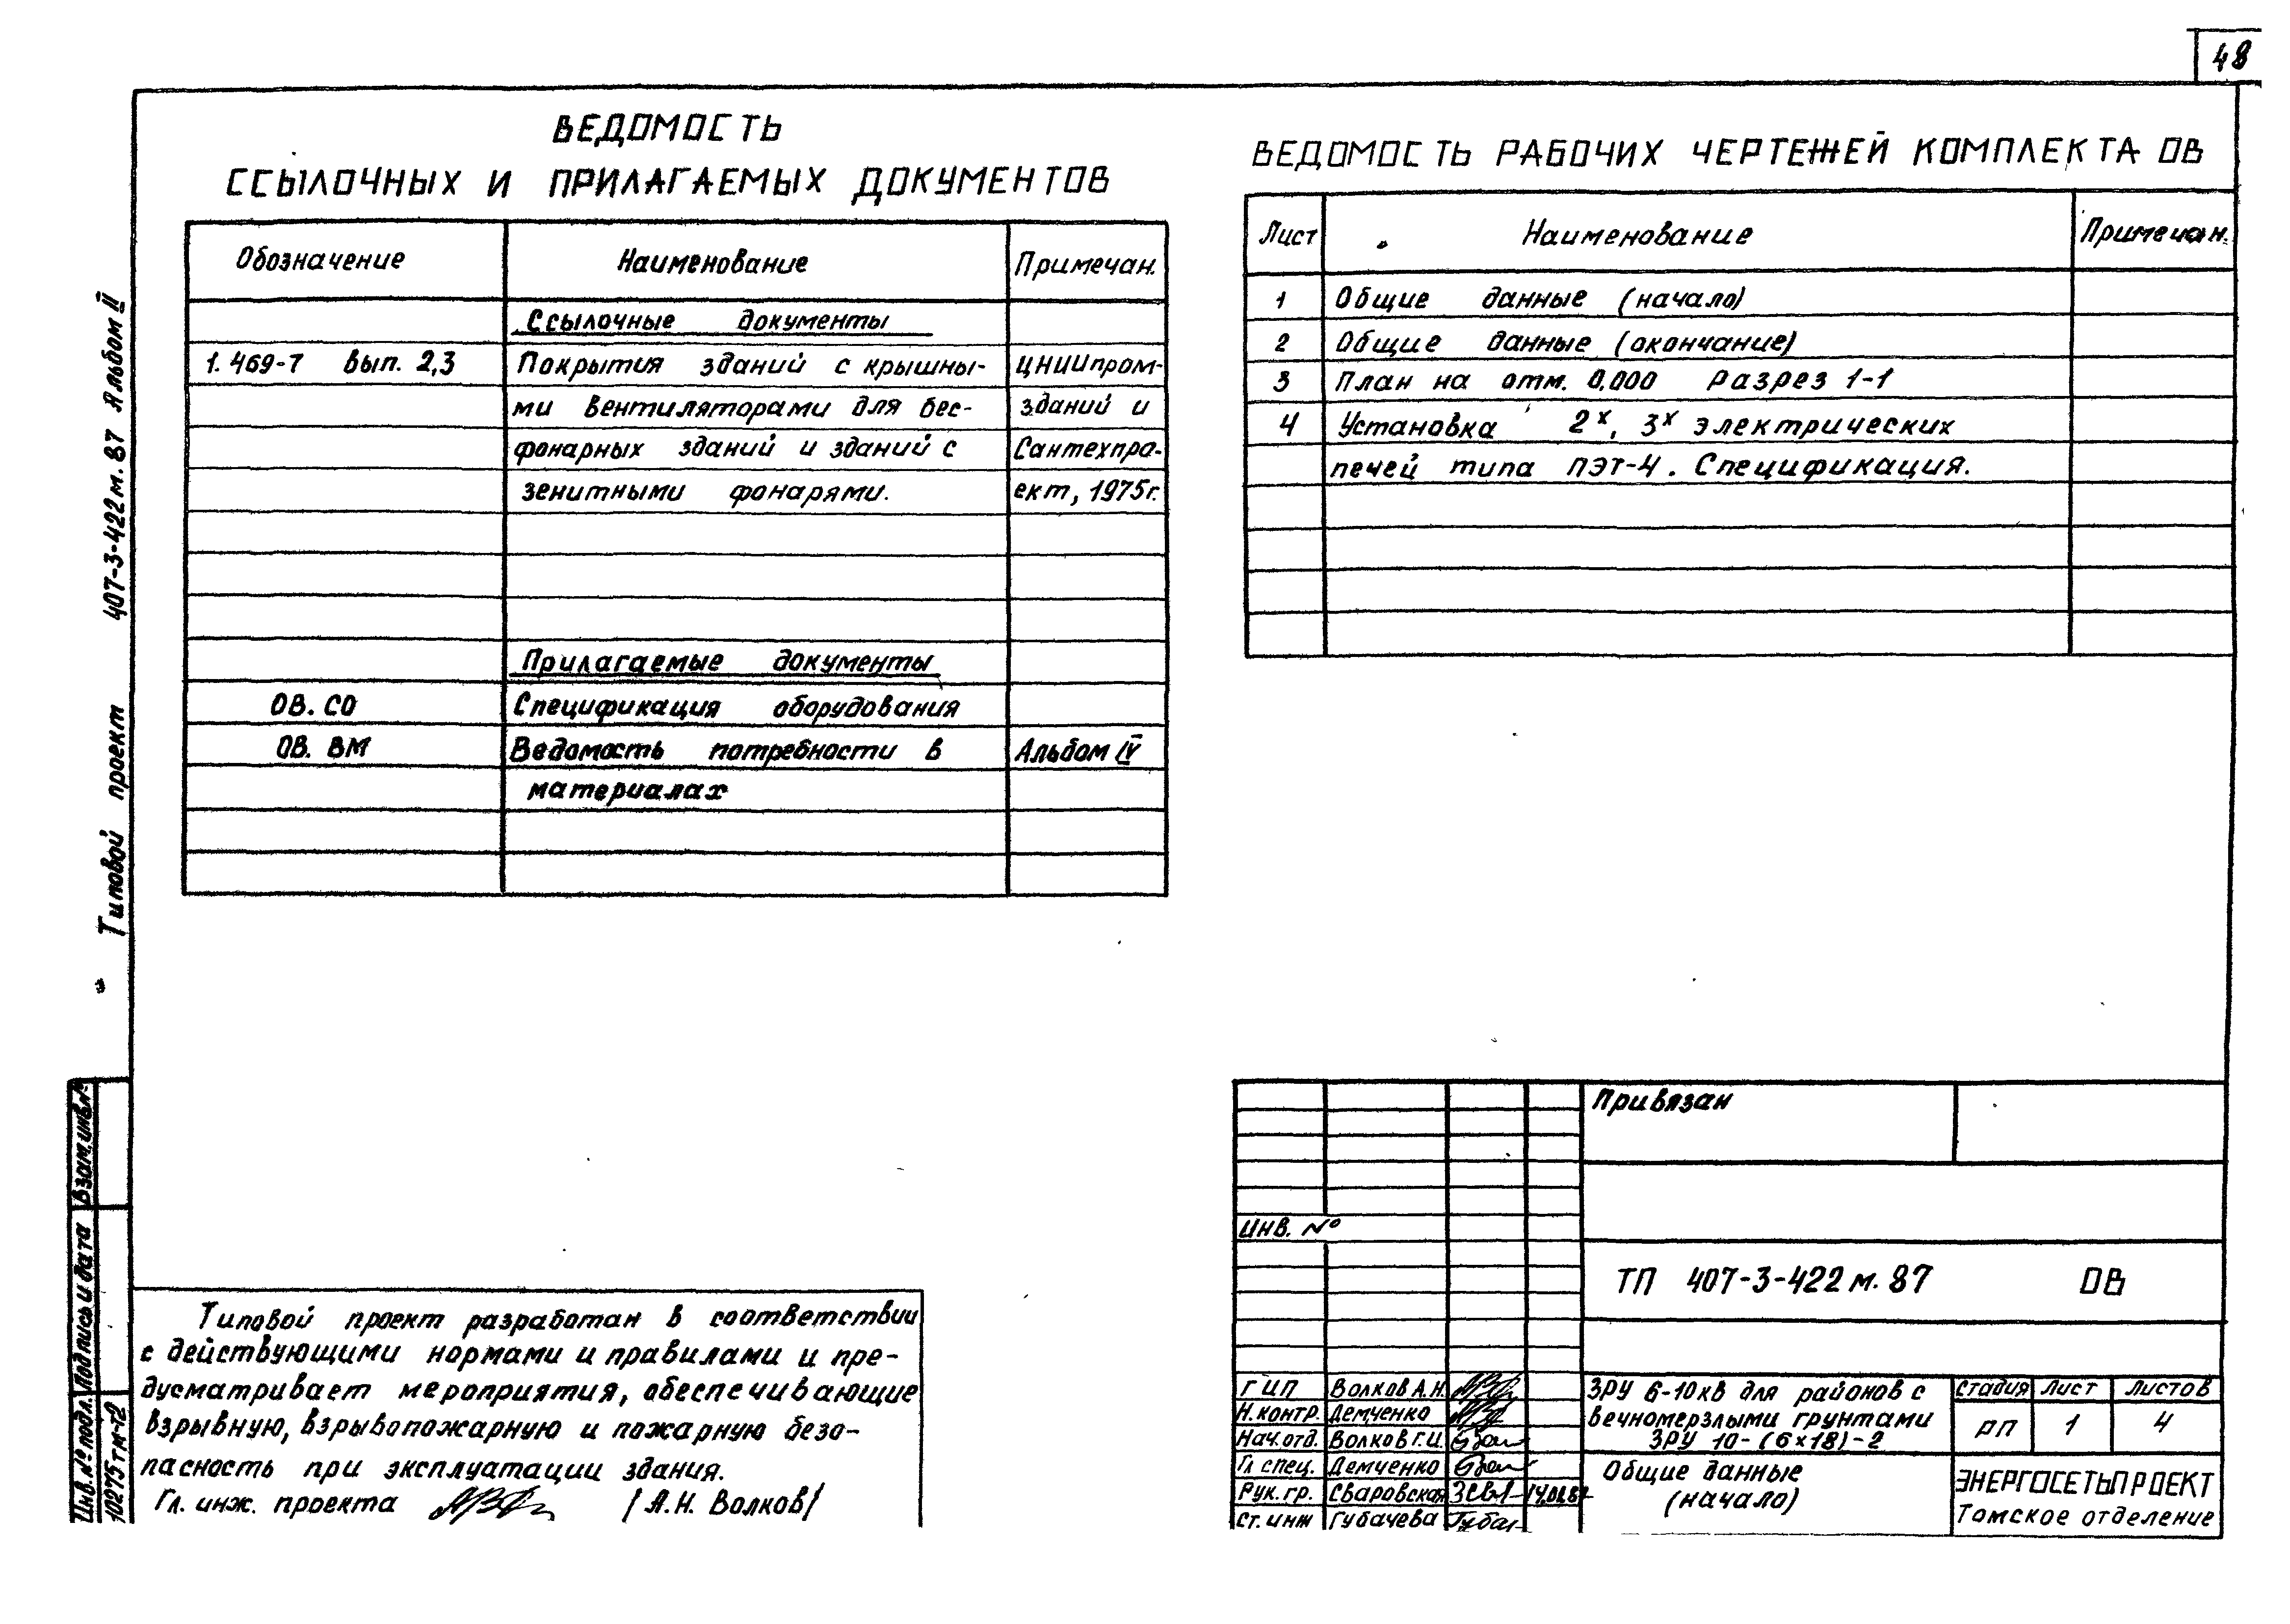 48
ВЕДОМОСТЬ
ССЫЛОЧНЫХ И ПРИЛАГАЕМЫХ ДОКУМЕНТОВ
Обозначение Наименование Примечан.
Ссылочные документы
1.469-7 вып. 2,3 Покрытия зданий с крышны- ЦНИИпром-
ми вентиляторами для бес- зданий и
фонарных зданий и зданий с Сантехпро-
зенитными фонарями. ект, 1975г.
Прилагаемые документы
ОВ. СО Спецификация оборудования
ОВ. ВМ Ведомость потребности в Альбом IV
материалах
ВЕДОМОСТЬ РАБОЧИХ ЧЕРТЕЖЕЙ КОМПЛЕКТА ОВ
Лист Наименование Примечан.
1 Общие данные (начало)
2 Общие данные (окончание)
3 План на отм. 0.000 Разрез 1-1
4 Установка 2х, 3х электрических
печей типа ПЭТ-4. Спецификация.
Типовой проект 407-3-422м.87 Альбом II
Взам.инв.№
Подпись и дата
Инв.№подл.
10275тм-т2
Типовой проект разработан в соответствии
с действующими нормами и правилами и пре-
дусматривает мероприятия, обеспечивающие
взрывную, взрывопожарную и пожарную безо-
пасность при эксплуатации здания.
Гл. инж. проекта /А.Н. Волков/
Привязан
Инв. №
ТП 407-3-422м.87 ОВ
ГИП Волков А.Н.
Н.контр. Демченко
Нач.отд. Волков Г.И.
Гл спец. Демченко
Рук. гр. Сваровская
Ст. инж Губачева
ЗРУ 6-10кв для районов с
вечномерзлыми грунтами
ЗРУ 10-(6×18)-2
Стадия Лист Листов
РП 1 4
Общие данные
(начало)
ЭНЕРГОСЕТЬПРОЕКТ
Томское отделение